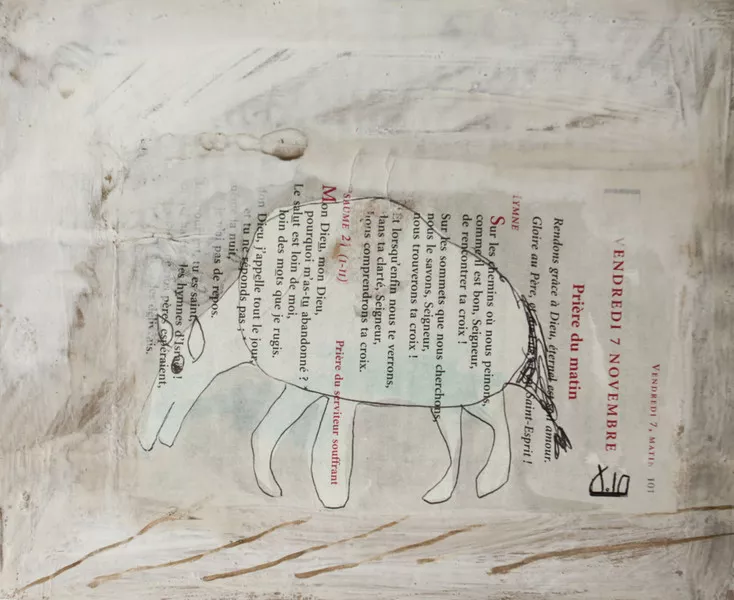 VENDREDI 7, MATIN 101
VENDREDI 7 NOVEMBRE
Prière du matin
Rendons grâce à Dieu, éternel est son amour.
Gloire au Père, Saint-Esprit !
HYMNE
Sur les chemins où nous peinons,
comme il est bon, Seigneur,
de rencontrer ta croix !
Sur les sommets que nous cherchons,
nous le savons, Seigneur,
nous trouverons ta croix !
Et lorsqu'enfin nous te verrons,
dans ta clarté, Seigneur,
nous comprendrons ta croix.
PSAUME 21 (1-11)
Prière du serviteur souffrant
Mon Dieu, mon Dieu,
pourquoi m'as-tu abandonné ?
Le salut est loin de moi,
loin des mots que je rugis.
Mon Dieu, j'appelle tout le jour,
et tu ne réponds pas ;
la nuit,
pas de repos.
tu es saint,
les hymnes d'Israël !
pères espéraient,